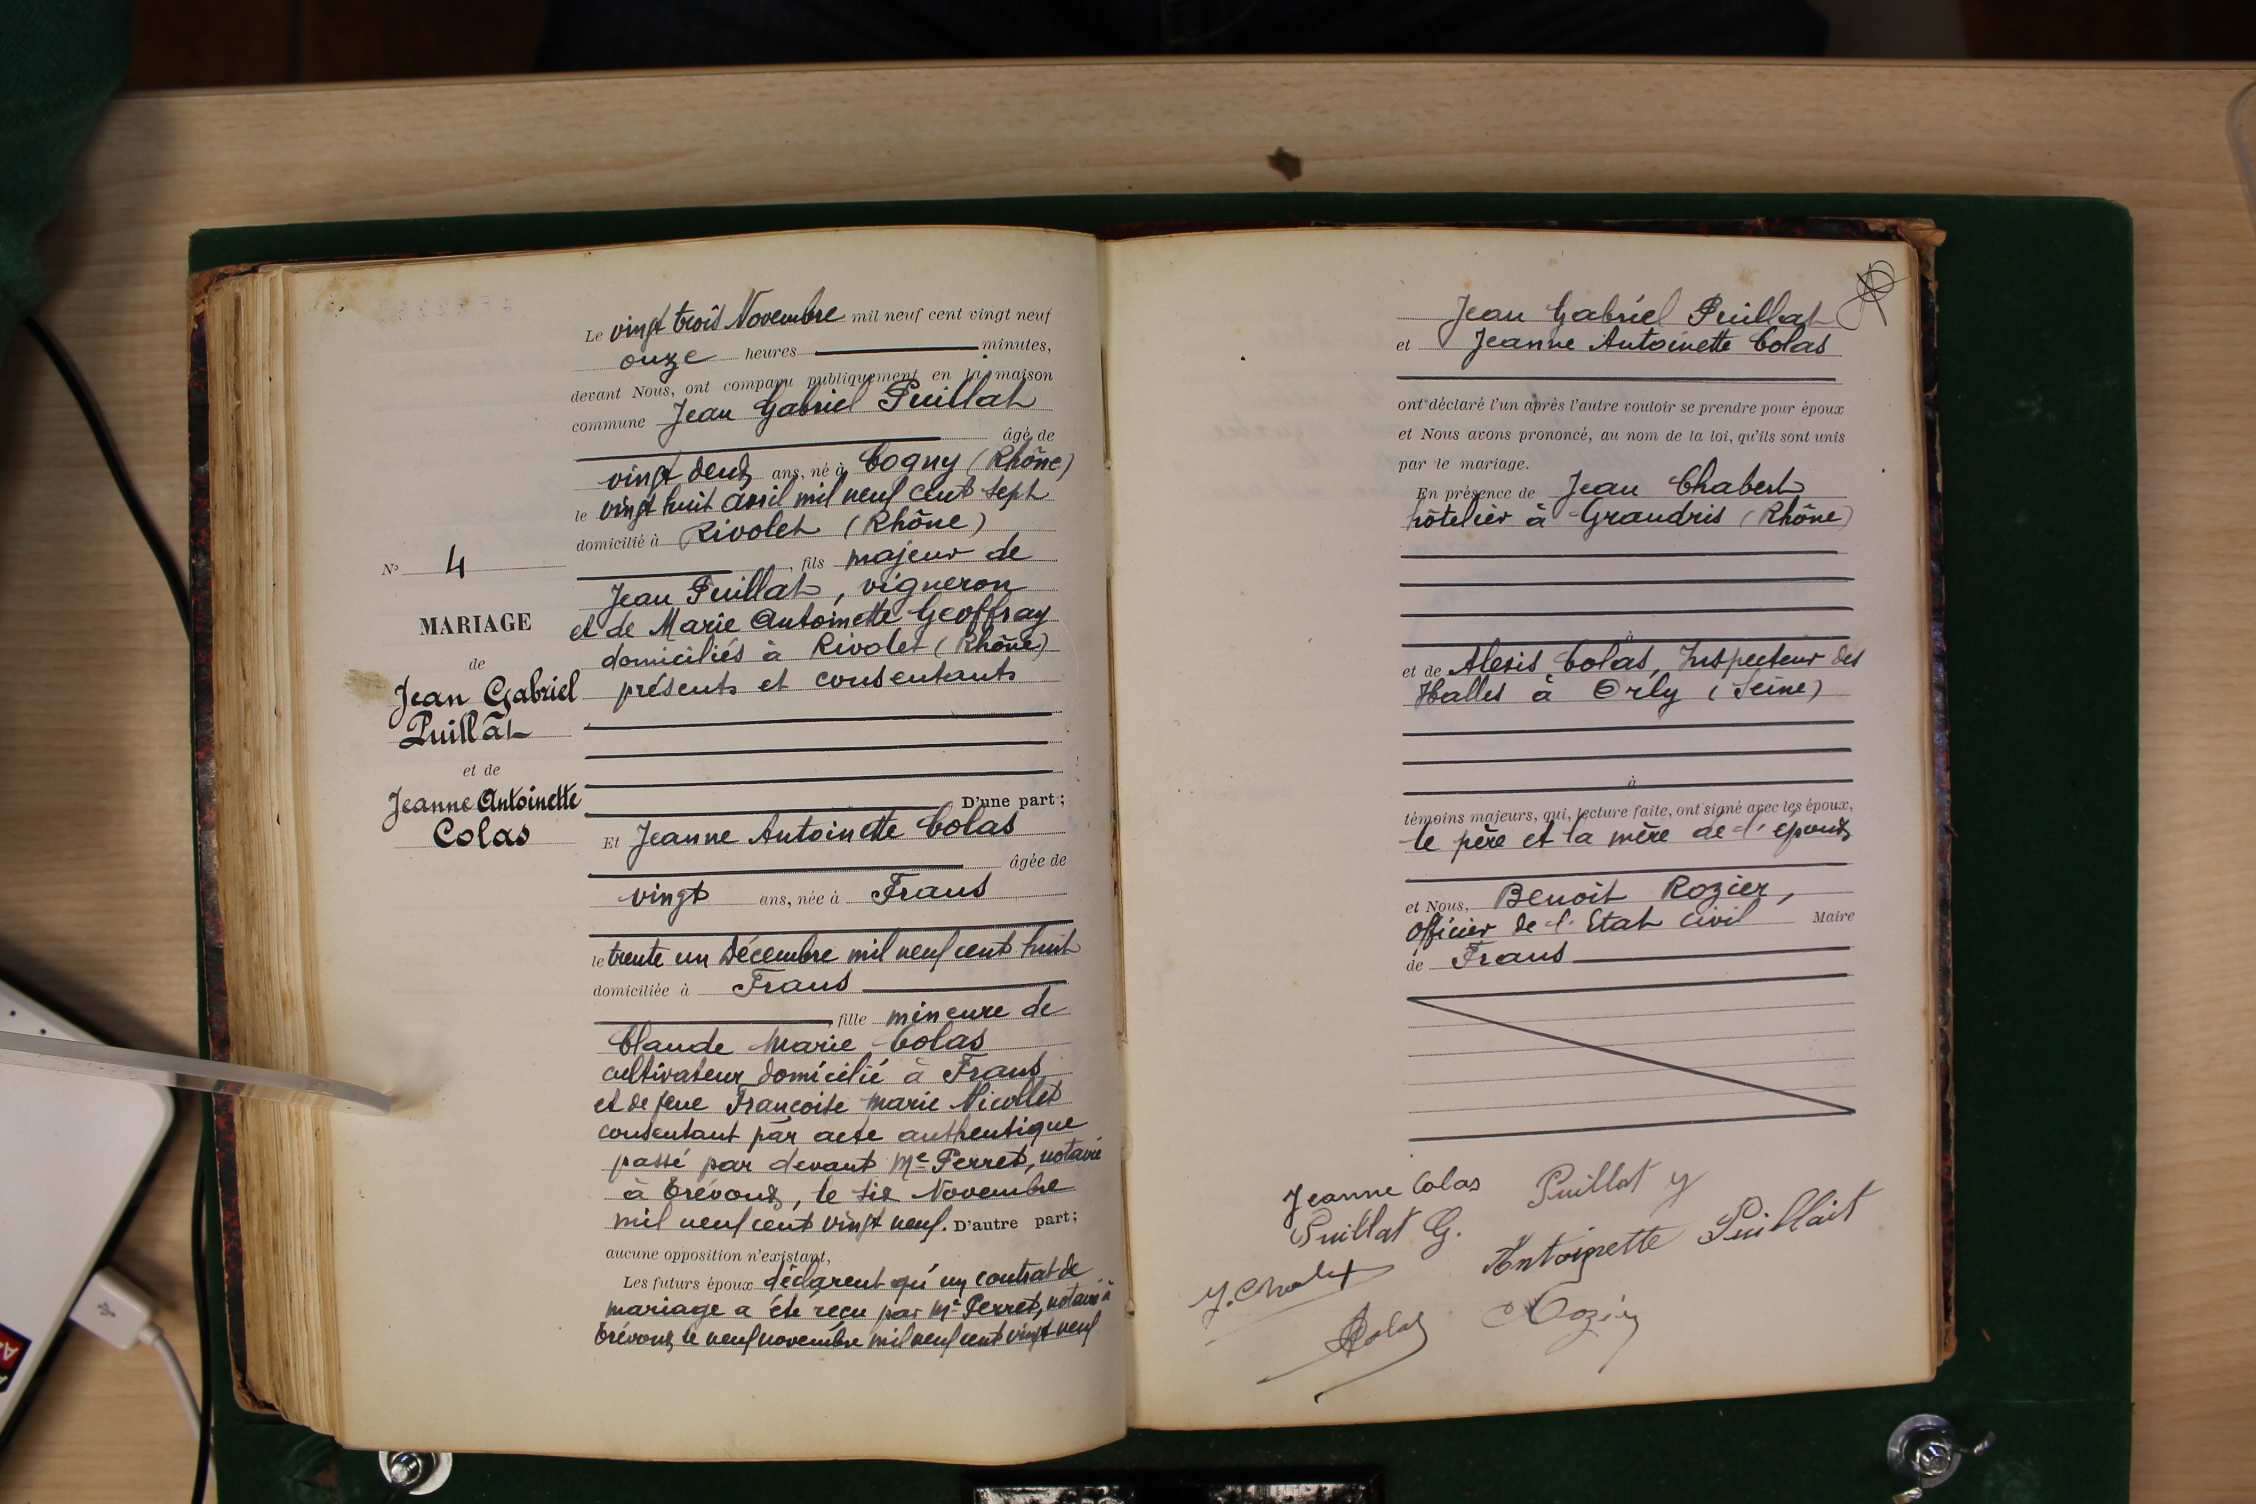 N° 4
MARIAGE
de
Jean Gabriel
Puillat
et de
Jeanne Antoinette
Colas
Le vingt trois Novembre mil neuf cent vingt neuf
onze heures minutes,
devant Nous, ont comparu publiquement en la maison
commune Jean Gabriel Puillat
âgé de
vingt deux ans, né à Cogny (Rhône)
le vingt huit avril mil neuf cent sept
domicilié à Rivolet (Rhône)
, fils majeur de
Jean Puillat, vigneron
et de Marie Antoinette Geoffray
domiciliés à Rivolet (Rhône)
présents et consentants
D'une part ;
Et Jeanne Antoinette Colas
âgée de
vingt ans, née à Frans
le trente un Décembre mil neuf cent huit
domiciliée à Frans
, fille mineure de
Claude Marie Colas
cultivateur domicilié à Frans
et de feue Françoise Marie Nicollet
consentant par acte authentique
passé par devant Me Perret, notaire
à Trévoux, le six Novembre
mil neuf cent vingt neuf. D'autre part ;
aucune opposition n'existant,
Les futurs époux déclarent qu'un contrat de
mariage a été reçu par Me Perret, notaire à
Trévoux le neuf novembre mil neuf cent vingt neuf
Jean Gabriel Puillat
et Jeanne Antoinette Colas
ont déclaré l'un après l'autre vouloir se prendre pour époux
et Nous avons prononcé, au nom de la loi, qu'ils sont unis
par le mariage.
En présence de Jean Chabert
hôtelier à Grandris (Rhône)
à
et de Alexis Colas, Inspecteur des
Halles à Orly (Seine)
à
témoins majeurs, qui, lecture faite, ont signé avec les époux,
le père et la mère de l'époux
et Nous, Benoit Rozier,
officier de l'Etat civil Maire
de Frans
Jeanne Colas Puillat
Puillat G. Antoinette Puillait
Colas Rozier